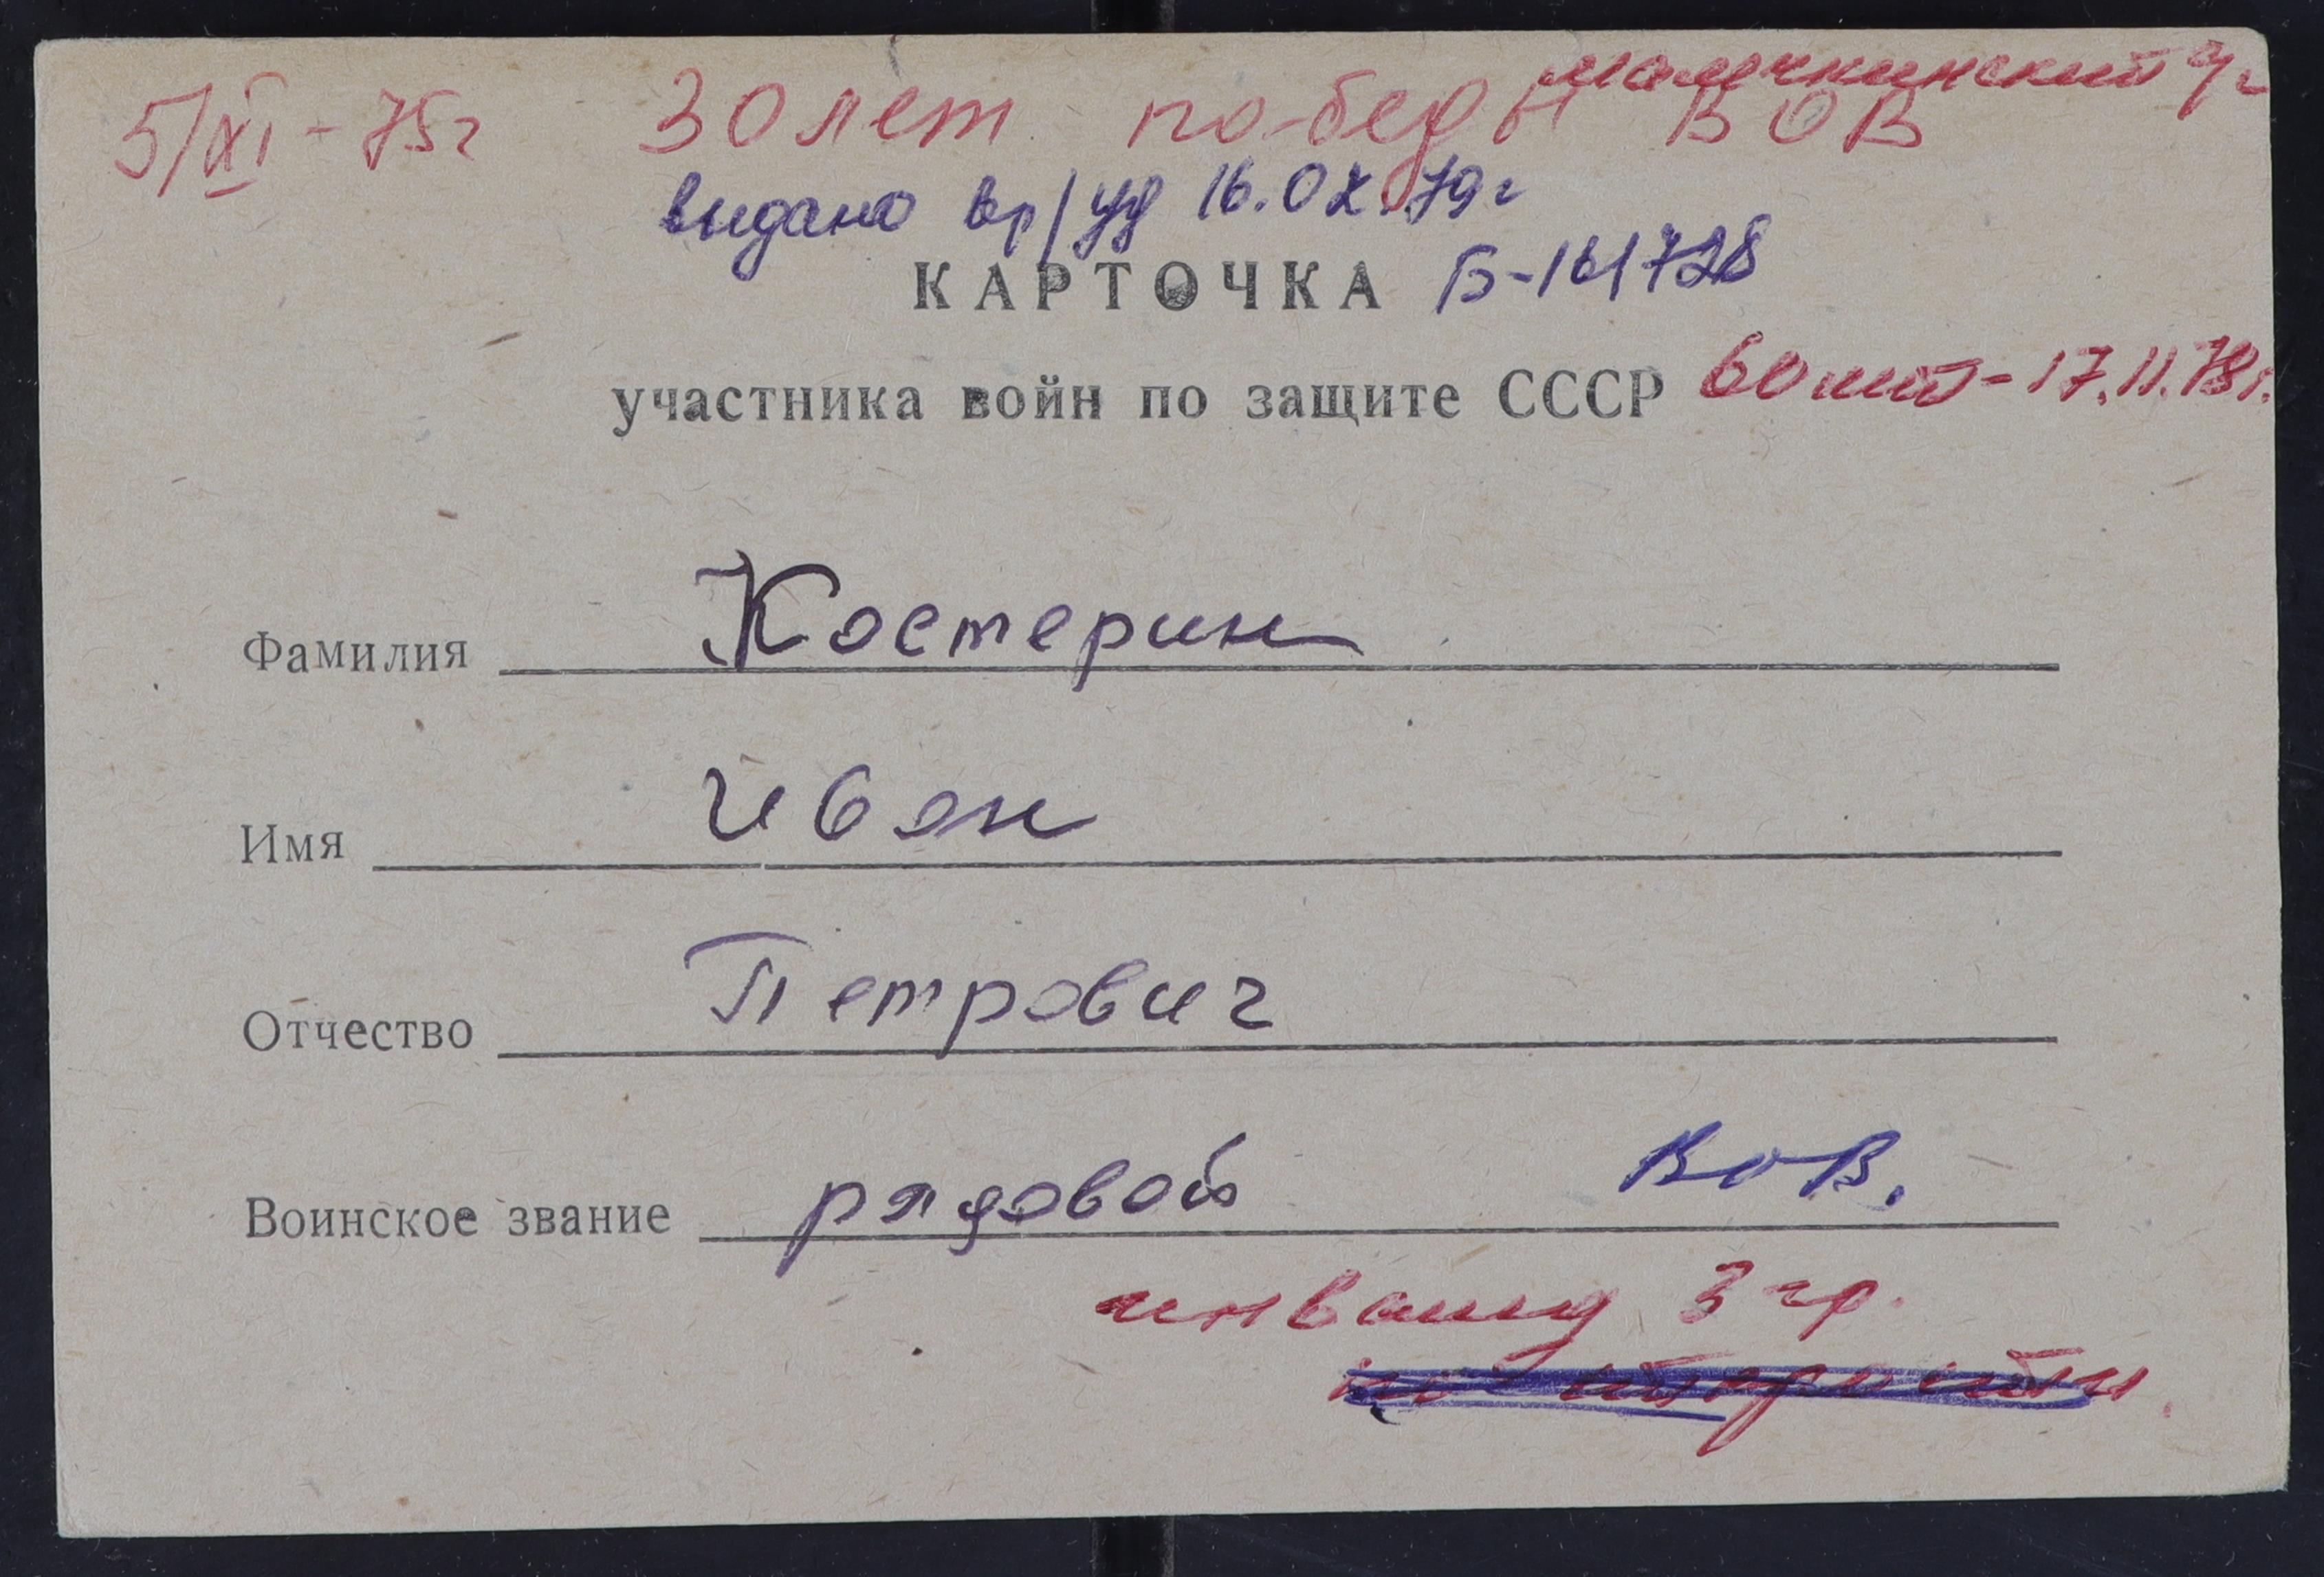 5/XI-75г 30 лет победы ВОВ
выдано вр/уд 16.0X.79г
КАРТОЧКА Б-161728
участника войн по защите СССР 60 лет - 17.11.78г.
Фамилия Костерин
Имя Иван
Отчество Петрович
Воинское звание рядовой ВОВ.
инвалид 3 гр.
по старости.